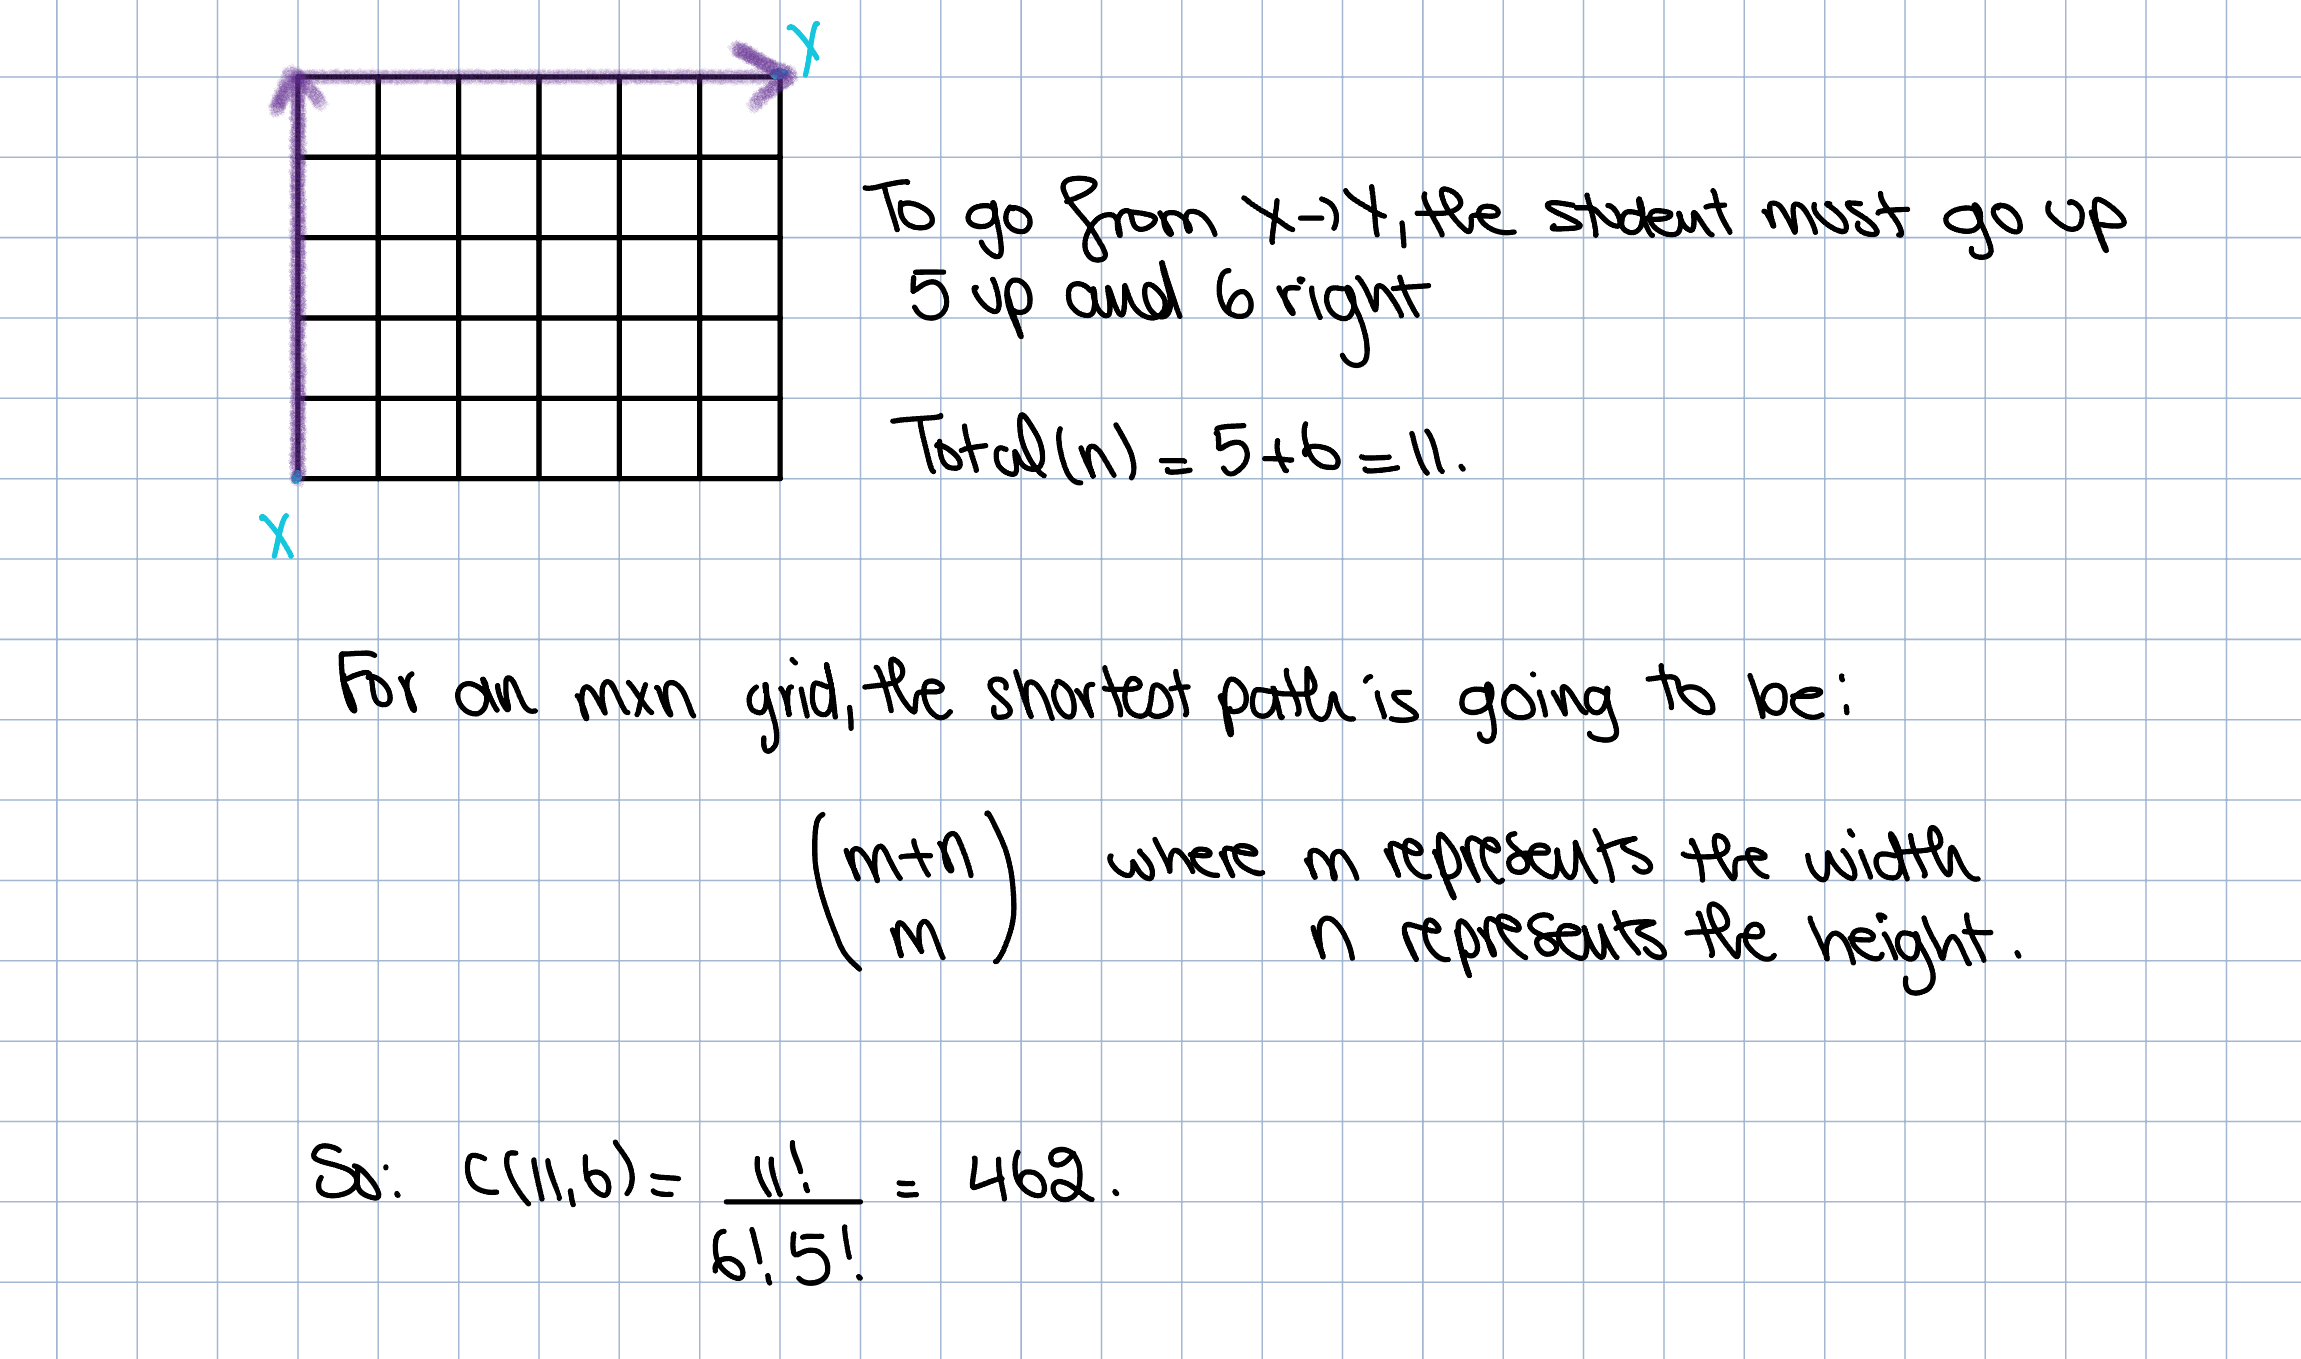 Y
To go from X→Y, the student must go up
5 up and 6 right
Total(n) = 5+6 = 11.
X
For an mxn grid, the shortest path is going to be:
(m+n
m) where m represents the width
n represents the height.
So: C(11,6) = 11! / 6! 5! = 462.